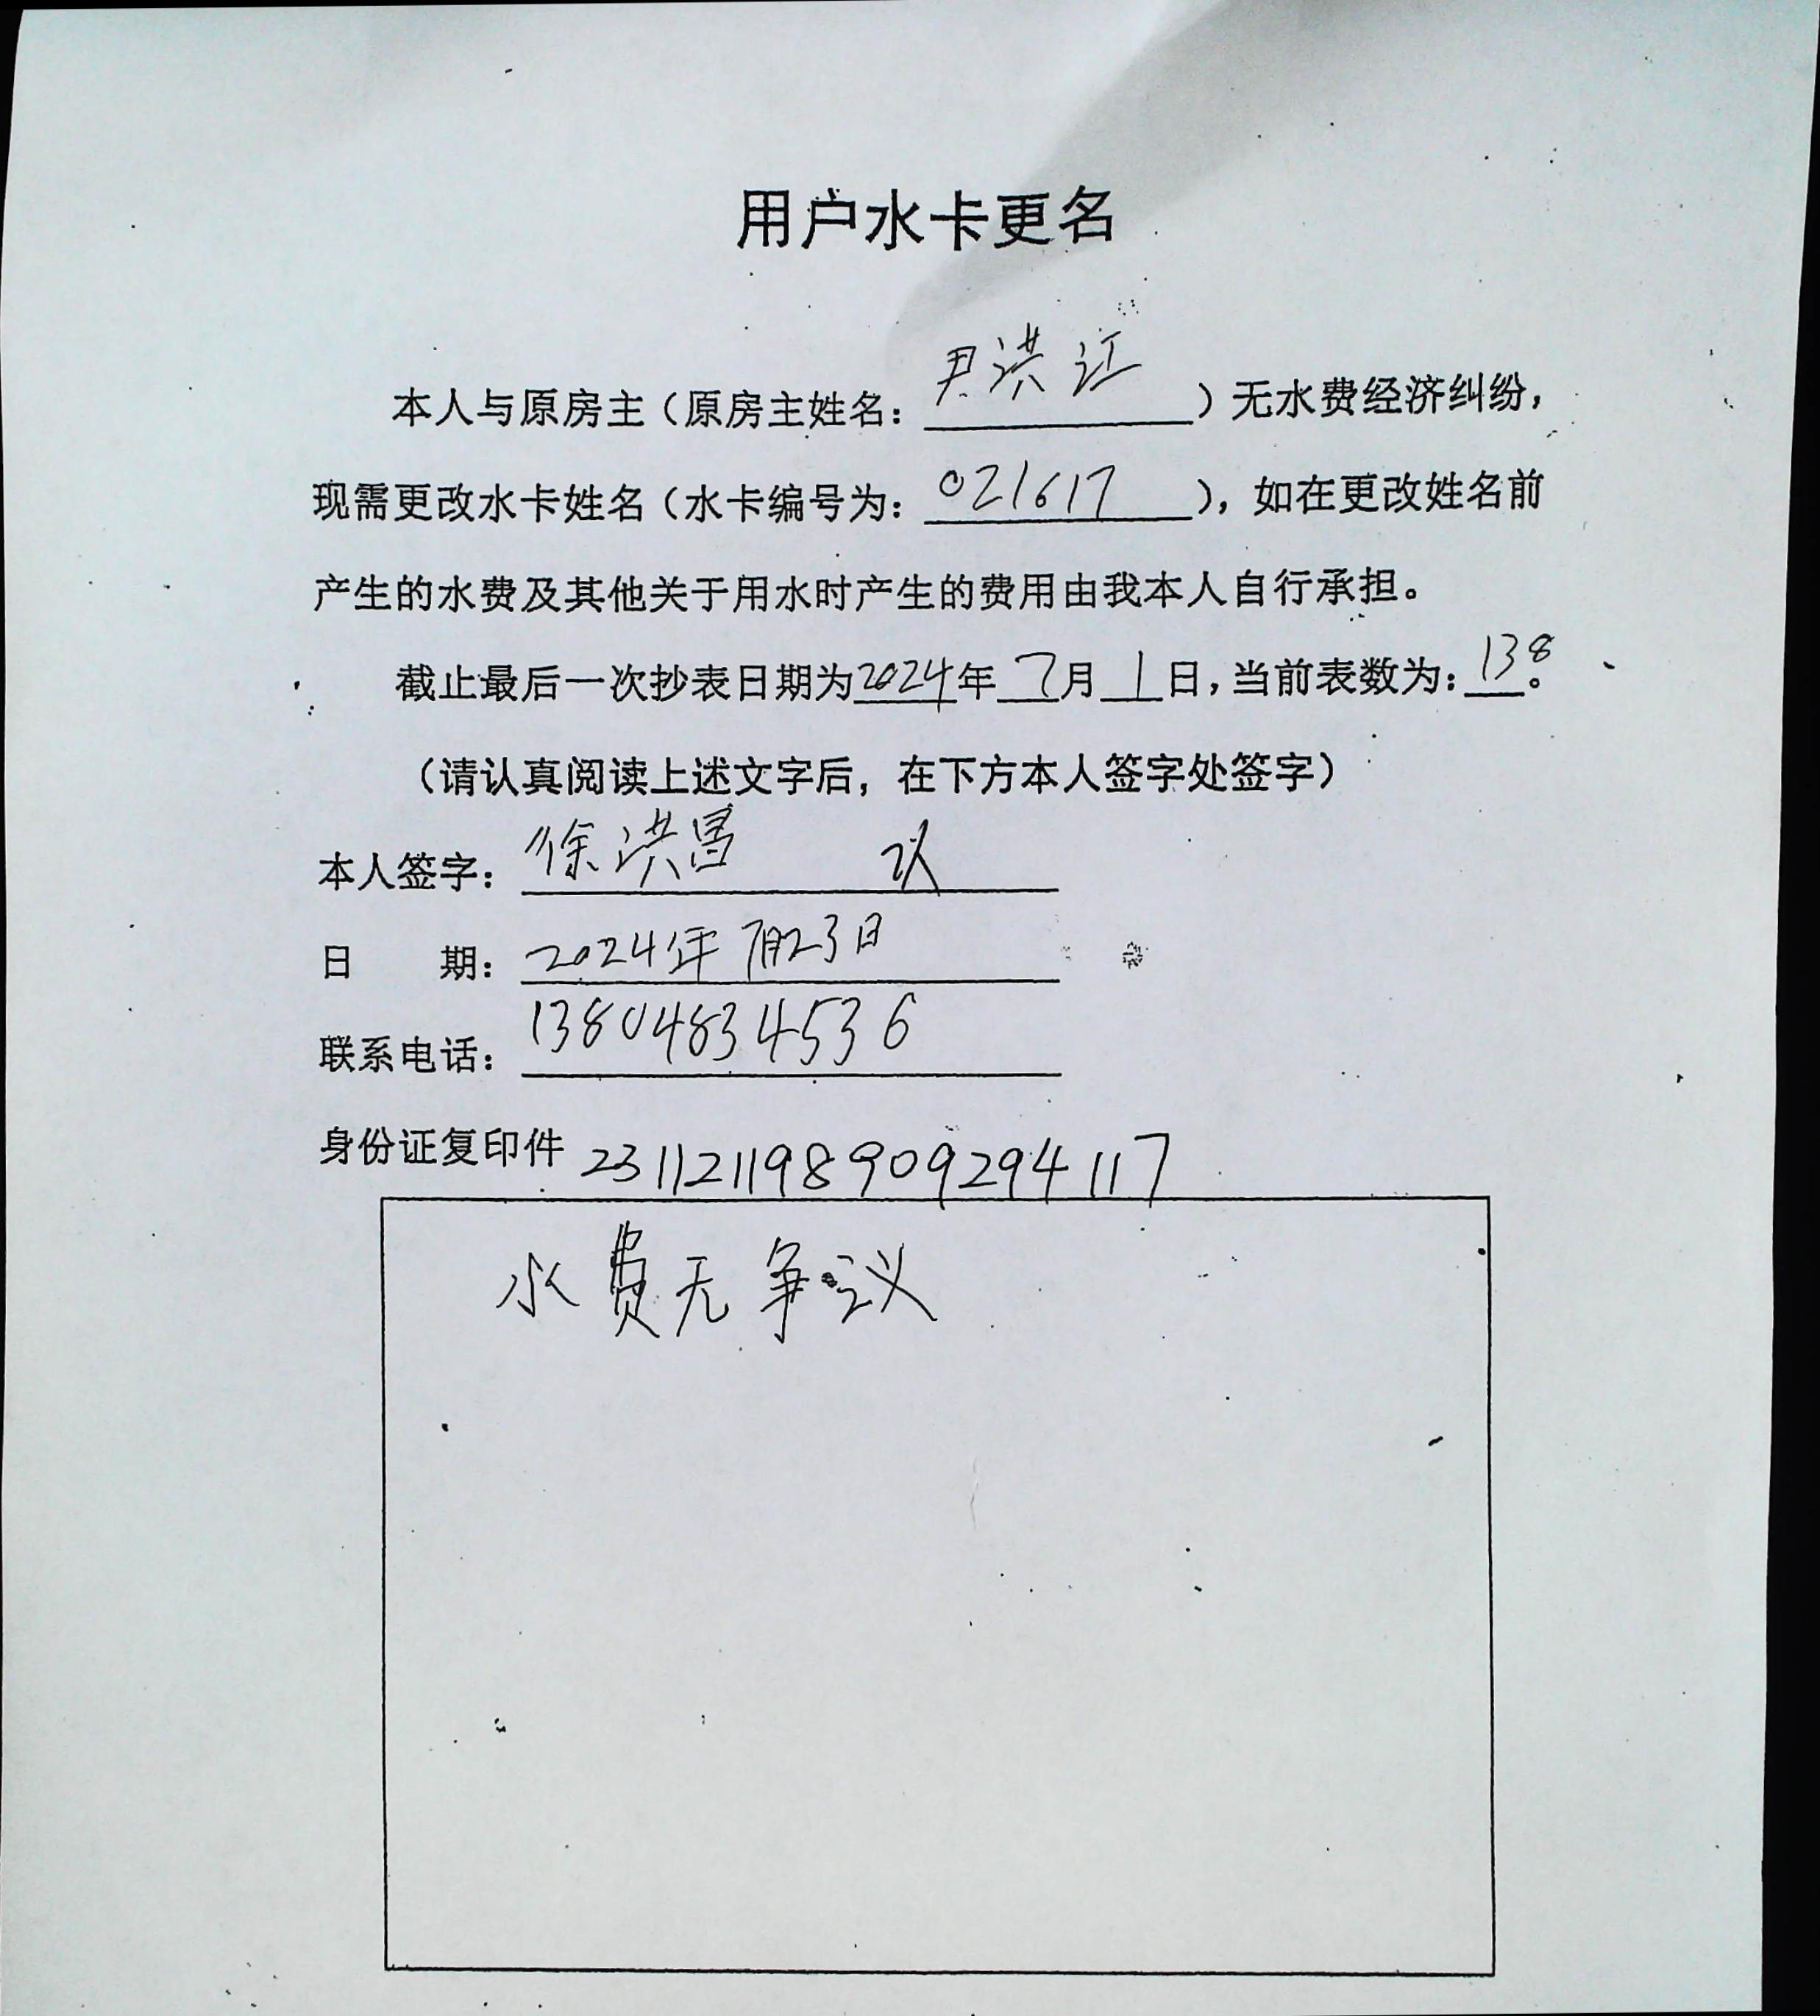 用户水卡更名
本人与原房主（原房主姓名：尹洪江）无水费经济纠纷，
现需更改水卡姓名（水卡编号为：021617），如在更改姓名前
产生的水费及其他关于用水时产生的费用由我本人自行承担。
截止最后一次抄表日期为2024年7月1日，当前表数为：138。
（请认真阅读上述文字后，在下方本人签字处签字）
本人签字：徐洪昌
日 期：2024年7月23日
联系电话：13804834536
身份证复印件 231121198909294117
水费无争议